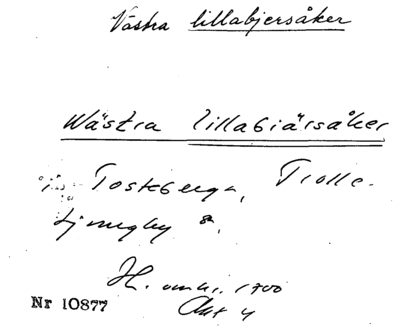 Västra lillabjersåker
Wästra lillabiärsåker
i Tosteberga, Trolle-
Ljungby s.
H. omkr. 1700
Akt 4
Nr 10877